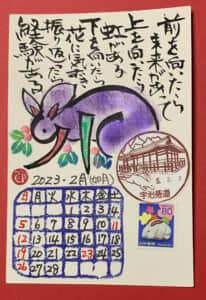 前を向いたら
未来があって
上を向いたら
虹がある
下を向いたら
花に気づき
振り返ったら
経験がある
2023・2月(如月)
日 月 火 水 木 金 土
1 2 3 4
5 6 7 8 9 10 11
12 13 14 15 16 17 18
19 20 21 22 23 24 25
26 27 28